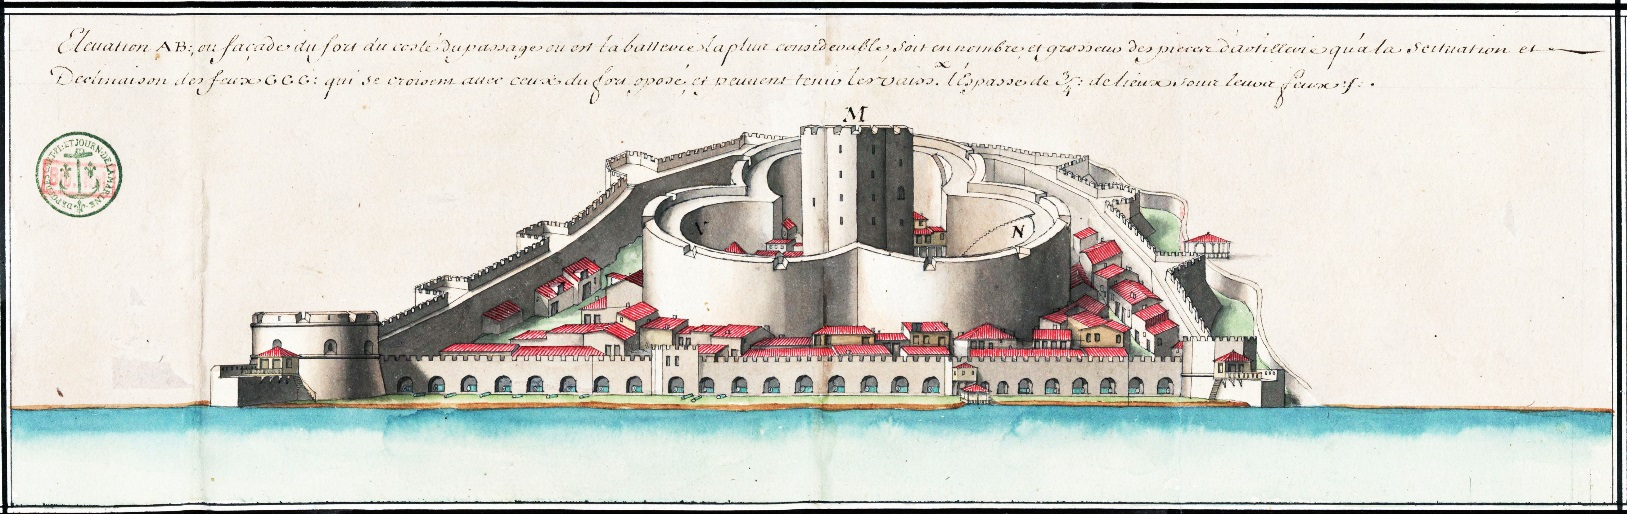 Elevation AB: ou façade du fort du costé du passage ou est la batterie la plus considerable, soit en nombre, et grosseur des pieces d'artillerie qu'a la scituation et
Declinaison des feux GGG: qui se croisent avec ceux du fort oposé, et peuvent tenir les vaiss.x l'espasse de 3/4: de lieux sous leurs feux :/: .
M
V
N
ET JOURN. DE LA MARINE